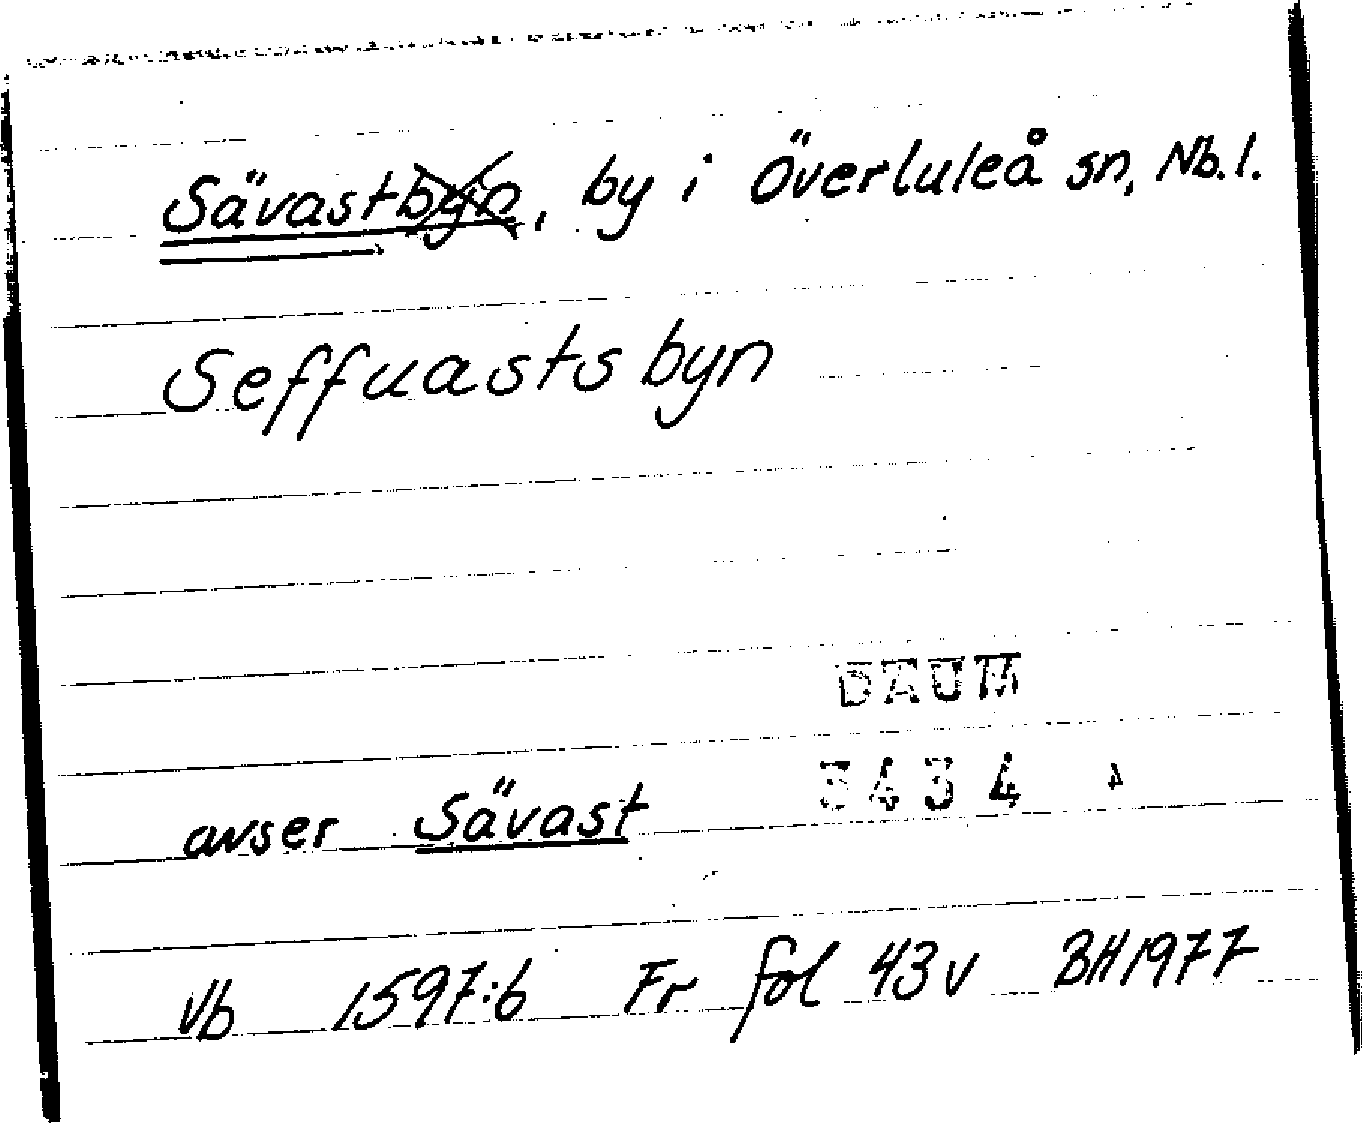 Sävastbyn, by i Överluleå sn, Nb.l.
Seffuastsbyn
DAUM
3434 A
avser Sävast
Vb 1597:6 Fr fol 43v BH1977